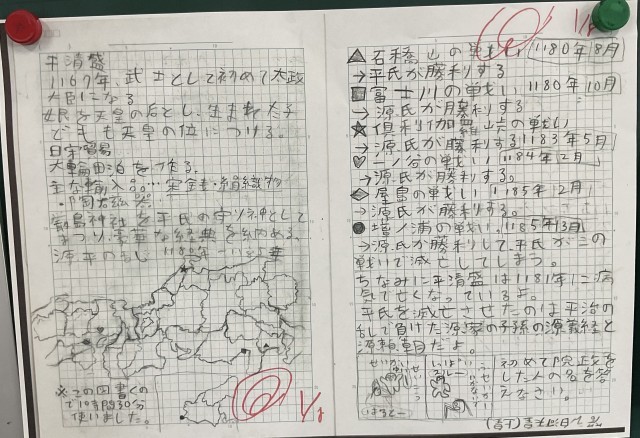 平清盛
1167年、武士として初めて太政
大臣になる
娘を天皇の后とし、生まれた子
どもも天皇の位につける。
日宋貿易
大輪田泊を作る。
主な輸入品…宋銭・絹織物
・陶磁器
厳島神社を平氏の守り神として
まつり、豪華な経典を納める。
※この図書くの
で1時間30分
使いました。
▲石橋山の戦い 1180年8月
→平氏が勝利する
■富士川の戦い 1180年10月
→源氏が勝利する
★倶利伽羅峠の戦い
→源氏が勝利する 1183年5月
♡一ノ谷の戦い 1184年2月
→源氏が勝利する。
◆屋島の戦い 1185年2月
→源氏が勝利する。
●壇ノ浦の戦い 1185年3月
→源氏が勝利して、平氏がこの
戦いで滅亡してしまう。
ちなみに平清盛は1181年に病
気で亡くなっているよ。
平氏を滅亡させたのは平治の
乱で負けた源義家の子孫の源義経と
源頼朝だよ。
初めて院政を
した人の名を答
えなさい。